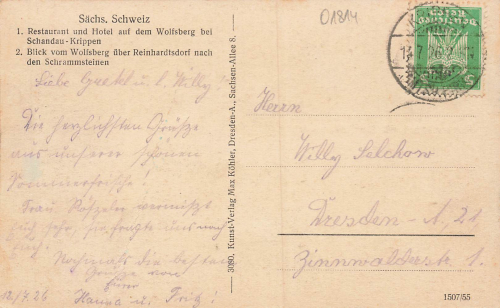 Sächs. Schweiz
1. Restaurant und Hotel auf dem Wolfsberg bei
Schandau-Krippen
2. Blick vom Wolfsberg über Reinhardtsdorf nach
den Schrammsteinen
Liebe Gretel u. l. Willy
Die herzlichsten Grüße
aus unserer schönen
Sommerfrische!
Frau
Nochmals die besten
Grüße von
Eurer
12./7.26 Hanna u. Fritz!
3080, Kunst-Verlag Max Köhler, Dresden-A., Sachsen-Allee 8.
01814
Herrn
Willy Selchow
Dresden-A, 21
Zinnwalderstr. 1.
1507/55